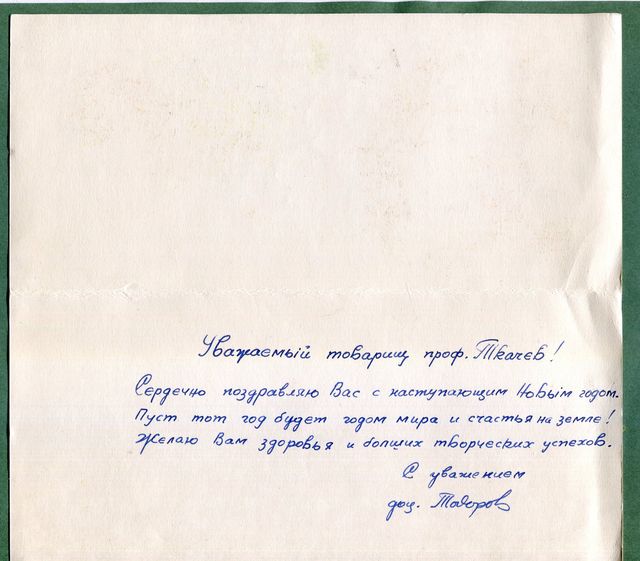 Уважаемый товарищ проф. Ткачев!
Сердечно поздравляю Вас с наступающим Новым годом.
Пуст тот год будет годом мира и счастья на земле!
Желаю Вам здоровья и болших творческих успехов.
С уважением
доц. Тодоров